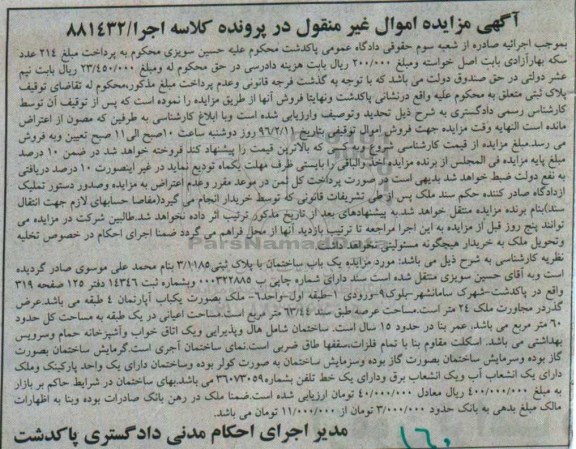 آگهی مزایده اموال غیر منقول در پرونده کلاسه اجرا/۸۸۱۴۳۲
بموجب اجرائیه صادره از شعبه سوم حقوقی دادگاه عمومی پاکدشت محکوم علیه حسین سویزی محکوم به پرداخت مبلغ ۲۱۴ عدد
سکه بهارآزادی بابت اصل خواسته ومبلغ ۲۰۰/۰۰۰ ریال بابت هزینه دادرسی در حق محکوم له ومبلغ ۲۳/۴۵۰/۰۰۰ ریال بابت نیم
عشر دولتی در حق صندوق دولت می باشد که با توجه به گذشت فرجه قانونی وعدم پرداخت مبلغ مذکور،محکوم له تقاضای توقیف
پلاک ثبتی متعلق به محکوم علیه واقع درنشانی پاکدشت ونهایتا فروش آنها از طریق مزایده را نموده است که پس از توقیف آن توسط
کارشناس رسمی دادگستری به شرح ذیل تحدید وتوصیف وارزیابی شده است وبا ابلاغ کارشناسی به طرفین که مصون از اعتراض
مانده است النهایه وقت مزایده جهت فروش اموال توقیفی بتاریخ ۹۶/۲/۱۱ روز دوشنبه ساعت ۱۰صبح الی۱۱ صبح تعیین وبه فروش
می رسد.مبلغ مزایده از قیمت کارشناسی شروع وبه کسی که بالاترین قیمت را پیشنهاد کند فروخته خواهد شد در ضمن ۱۰ درصد
مبلغ پایه مزایده فی المجلس از برنده مزایده اخذ والباقی را بایستی ظرف مهلت یکماه تودیع نماید در غیر اینصورت ۱۰ درصد دریافتی
به نفع دولت ضبط خواهد شد بدیهی است در صورت پرداخت کل ثمن در موعد مقرر وعدم اعتراض به مزایده وصدور دستور تملیک
ازدادگاه صادر کننده حکم سند ملک پس از طی تشریفات قانونی که توسط خریدار انجام می گیرد(مفاصا حسابهای لازم جهت انتقال
سند)بنام برنده مزایده منتقل خواهد شد.به پیشنهادهای بعد از تاریخ مذکور ترتیب اثر داده نخواهد شد.طالبین شرکت در مزایده می
توانند پنج روز قبل از مزایده به این اجرا مراجعه تا ترتیب بازدید آنها از محل فراهم گردد ضمنا اجرای احکام در خصوص تخلیه
وتحویل ملک به خریدار هیچگونه مسئولیتی نخواهد داشت.
نظریه کارشناسی به شرح ذیل می باشد: مورد مزایده یک باب ساختمان با پلاک ثبتی۳/۱۱۸۵ بنام محمد علی موسوی صادر گردیده
است وبه آقای حسین سویزی منتقل شده است سند دارای شماره چاپی ب ۰۰۰۳۲۲۸۸۵ وبشماره ثبت ۱۴۳۴۶ دفتر ۱۲۵ صفحه ۳۱۹
واقع در پاکدشت-شهرک سامانشهر-بلوک۹-ورودی ۱-طبقه اول-واحد۶- ملک بصورت یکباب آپارتمان ۴ طبقه می باشد.عرض
گذردر مجاورت ملک ۲۴ متر است.مساحت عرصه طبق سند ۶۳/۴۴ متر مربع است.مساحت اعیانی در یک طبقه به مساحت کل حدود
۶۰ متر مربع می باشد. عمر بنا در حدود ۱۵ سال است. ساختمان شامل هال وپذیرایی ویک اتاق خواب وآشپزخانه حمام وسرویس
بهداشتی می باشد. اسکلت مقاوم بنا با تمام فلزات،سقفها طاق ضربی است.نمای ساختمان آجری است.گرمایش ساختمان بصورت
گاز بوده وسرمایش ساختمان بصورت گاز بوده وسرمایش ساختمان به صورت کولر بوده وساختمان دارای یک واحد پارکینک وملک
دارای یک انشعاب آب ویک انشعاب برق ودارای یک خط تلفن بشماره۳۶۰۷۳۰۵۹ می باشد.بهای ساختمان در شرایط حاکم بر بازار
به مبلغ ۴۰۰/۰۰۰/۰۰۰ ریال معادل ۴۰/۰۰۰/۰۰۰ تومان ارزیابی شده است.ضمنا ملک در رهن بانک صادرات بوده وبنا به اظهارات
مالک مبلغ بدهی به بانک حدود ۳/۰۰۰/۰۰۰ تومان از ۱۱/۰۰۰/۰۰۰ تومان می باشد.
مدیر اجرای احکام مدنی دادگستری پاکدشت
۱۶۰